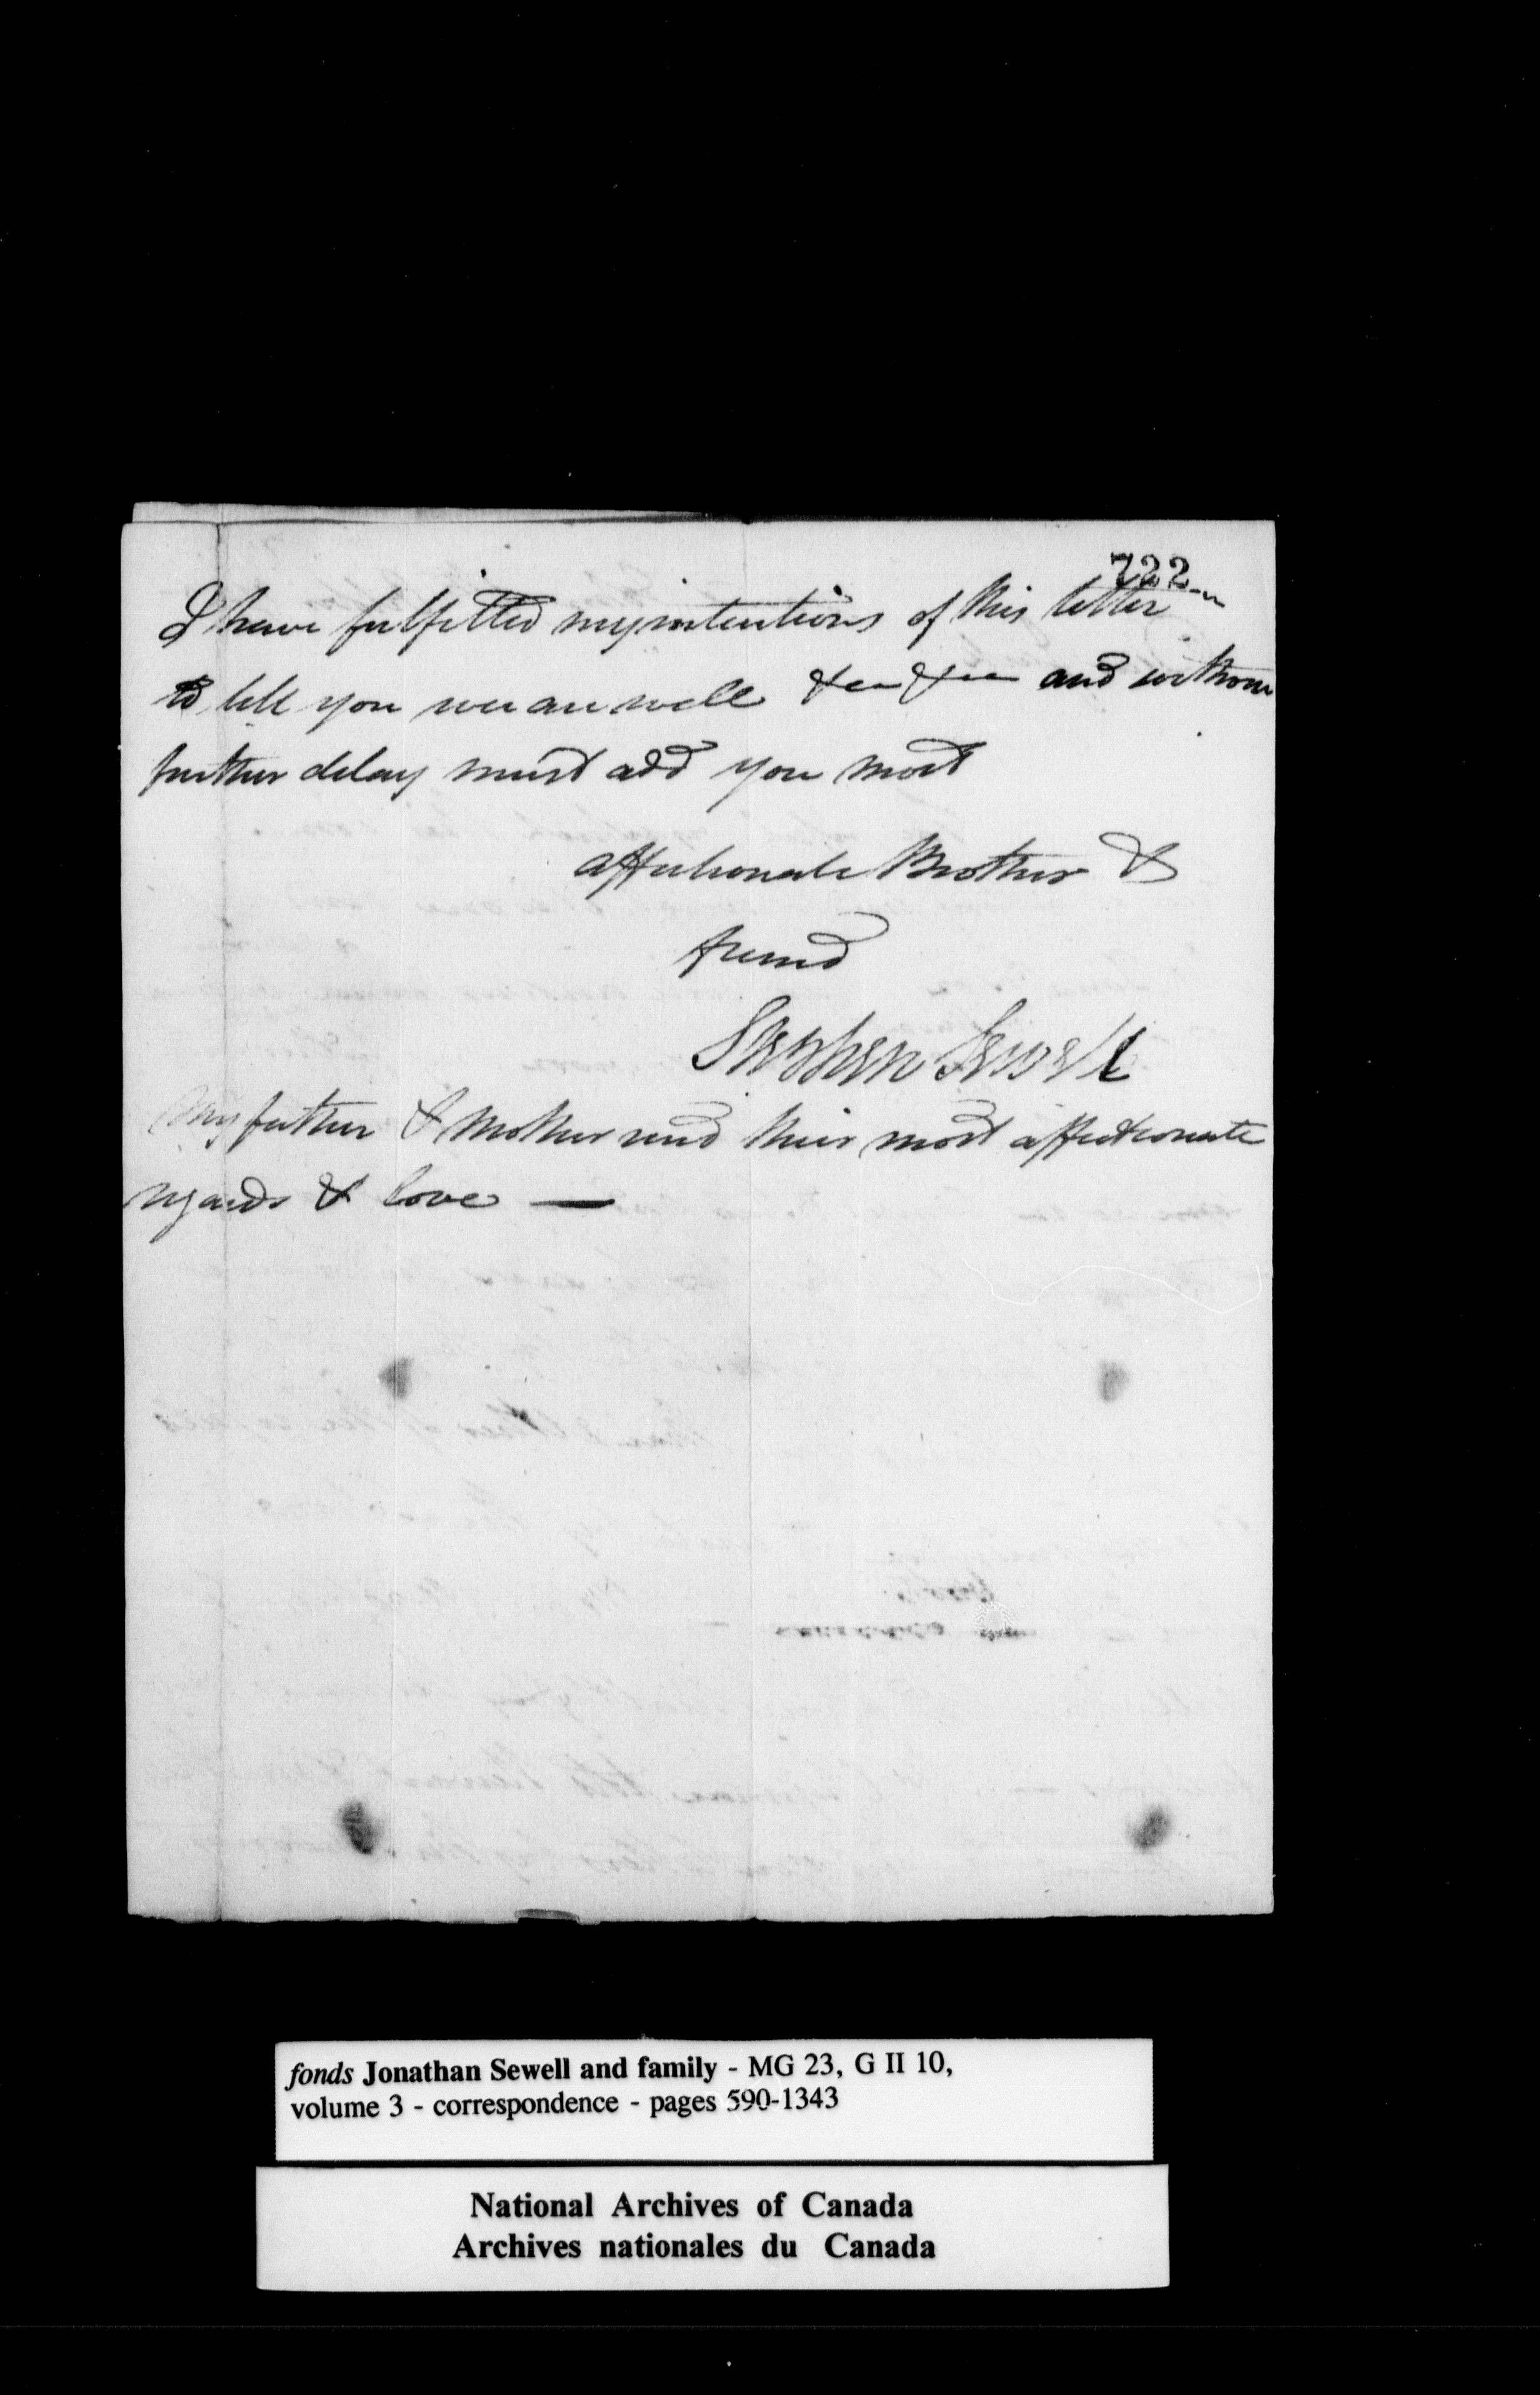 722
I have fulfilled my intentions of this letter
to tell you we are well &c &c and without
further delay must add you most
affectionate Brother &
friend
Stephen Sewell
My father & Mother send their most affectionate
regards & love —
fonds Jonathan Sewell and family - MG 23, G II 10,
volume 3 - correspondence - pages 590-1343
National Archives of Canada
Archives nationales du Canada